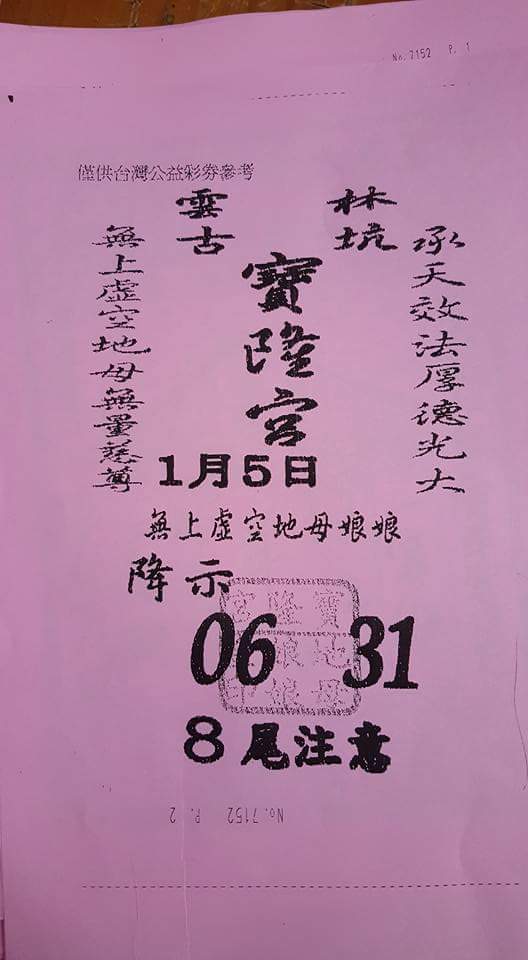 No. 7152 P. 1
僅供台灣公益彩券參考
雲林
古坑
承天效法厚德光大
寶隆宮
無上虛空地母無量慈尊
1月5日
無上虛空地母娘娘
降示
寶隆宮
地母娘娘印
06 31
8尾注意
No. 7152 P. 2